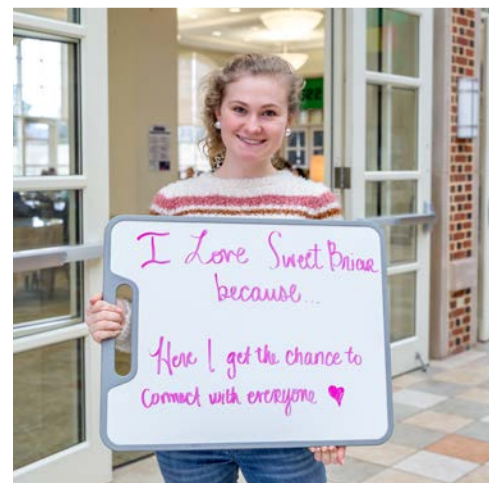 I Love Sweet Briar
because...
Here I get the chance to
connect with everyone ♥